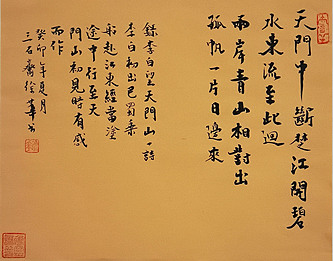 天門中斷楚江開碧
水東流至此迴
兩岸青山相對出
孤帆一片日邊來
錄李白望天門山一詩
李白初出巴蜀乘
船赴江東經當塗
途中行至天
門山初見時有感
而作
癸卯年夏月